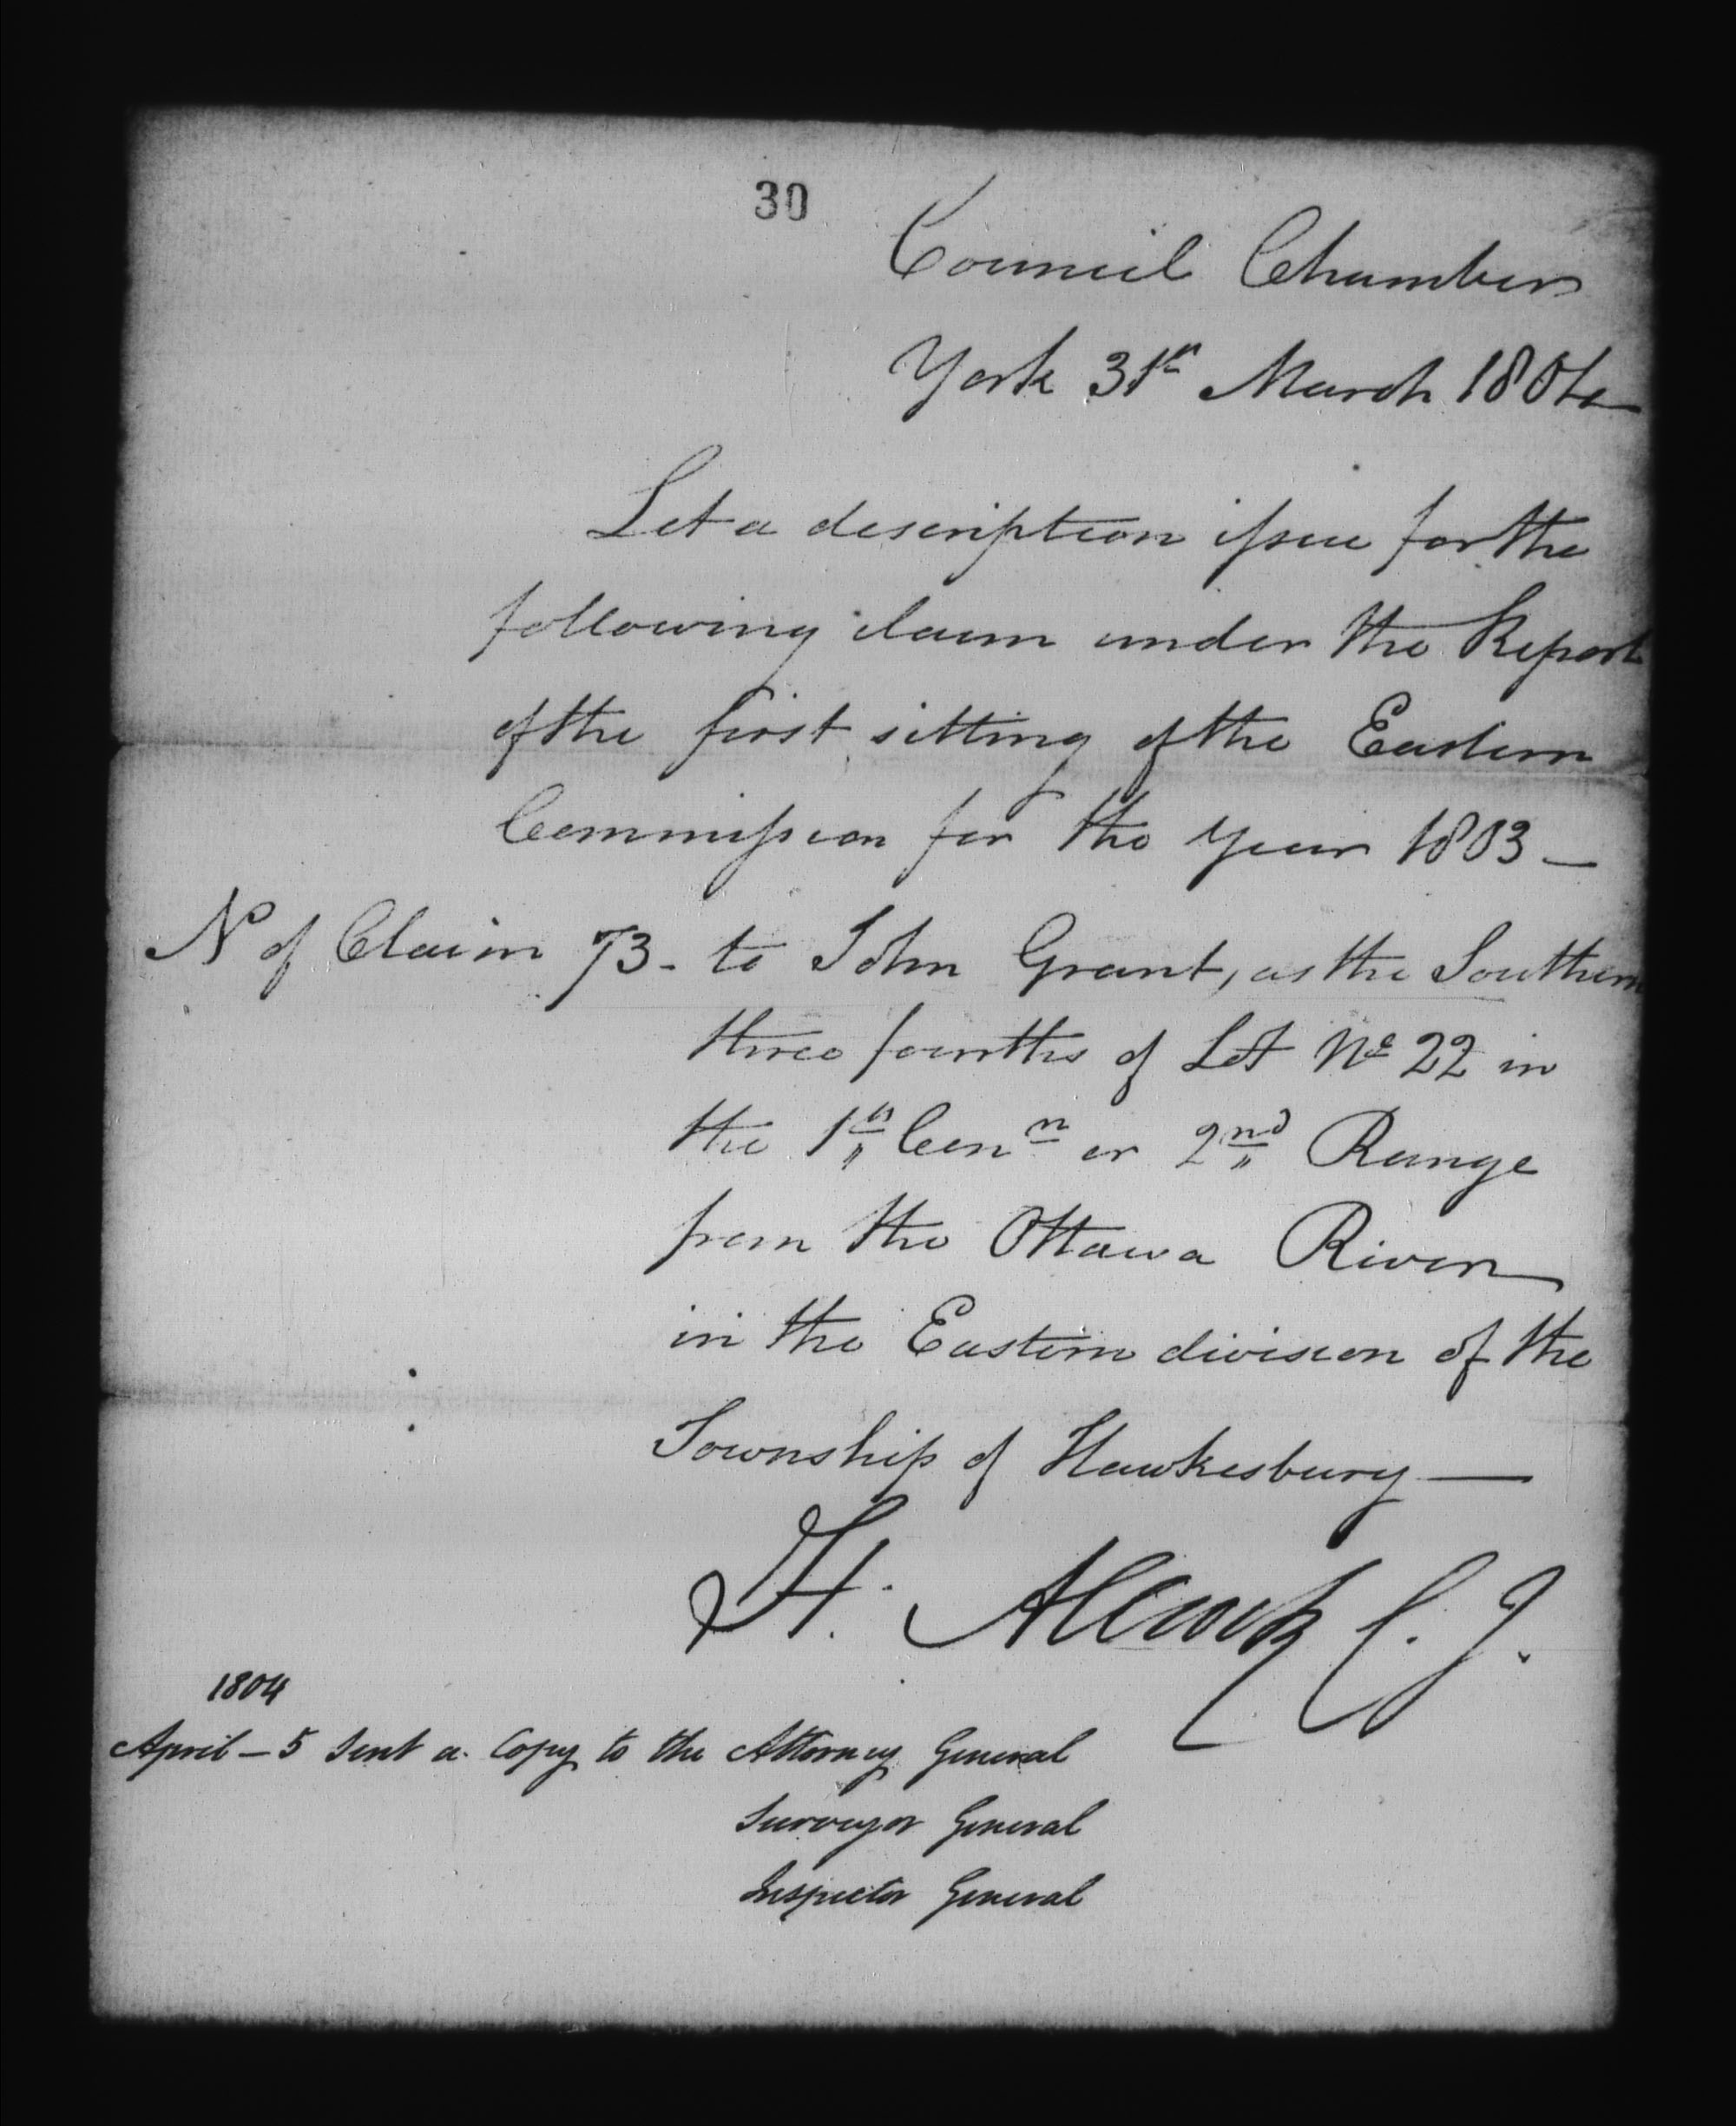 30
Council Chamber
York 31st March 1804
Let a description issue for the
following claim under the Report
of the first sitting of the Eastern
Commission for the year 1803 —
No of Claim 73 - to John Grant, as the Southern
three fourths of Lot No 22 in
the 1st Conn or 2nd Range
from the Ottawa River
in the Eastern division of the
Township of Hawkesbury —
H. Allcock C. J.
1804
April — 5 Sent a Copy to the Attorney General
Surveyor General
Inspector General